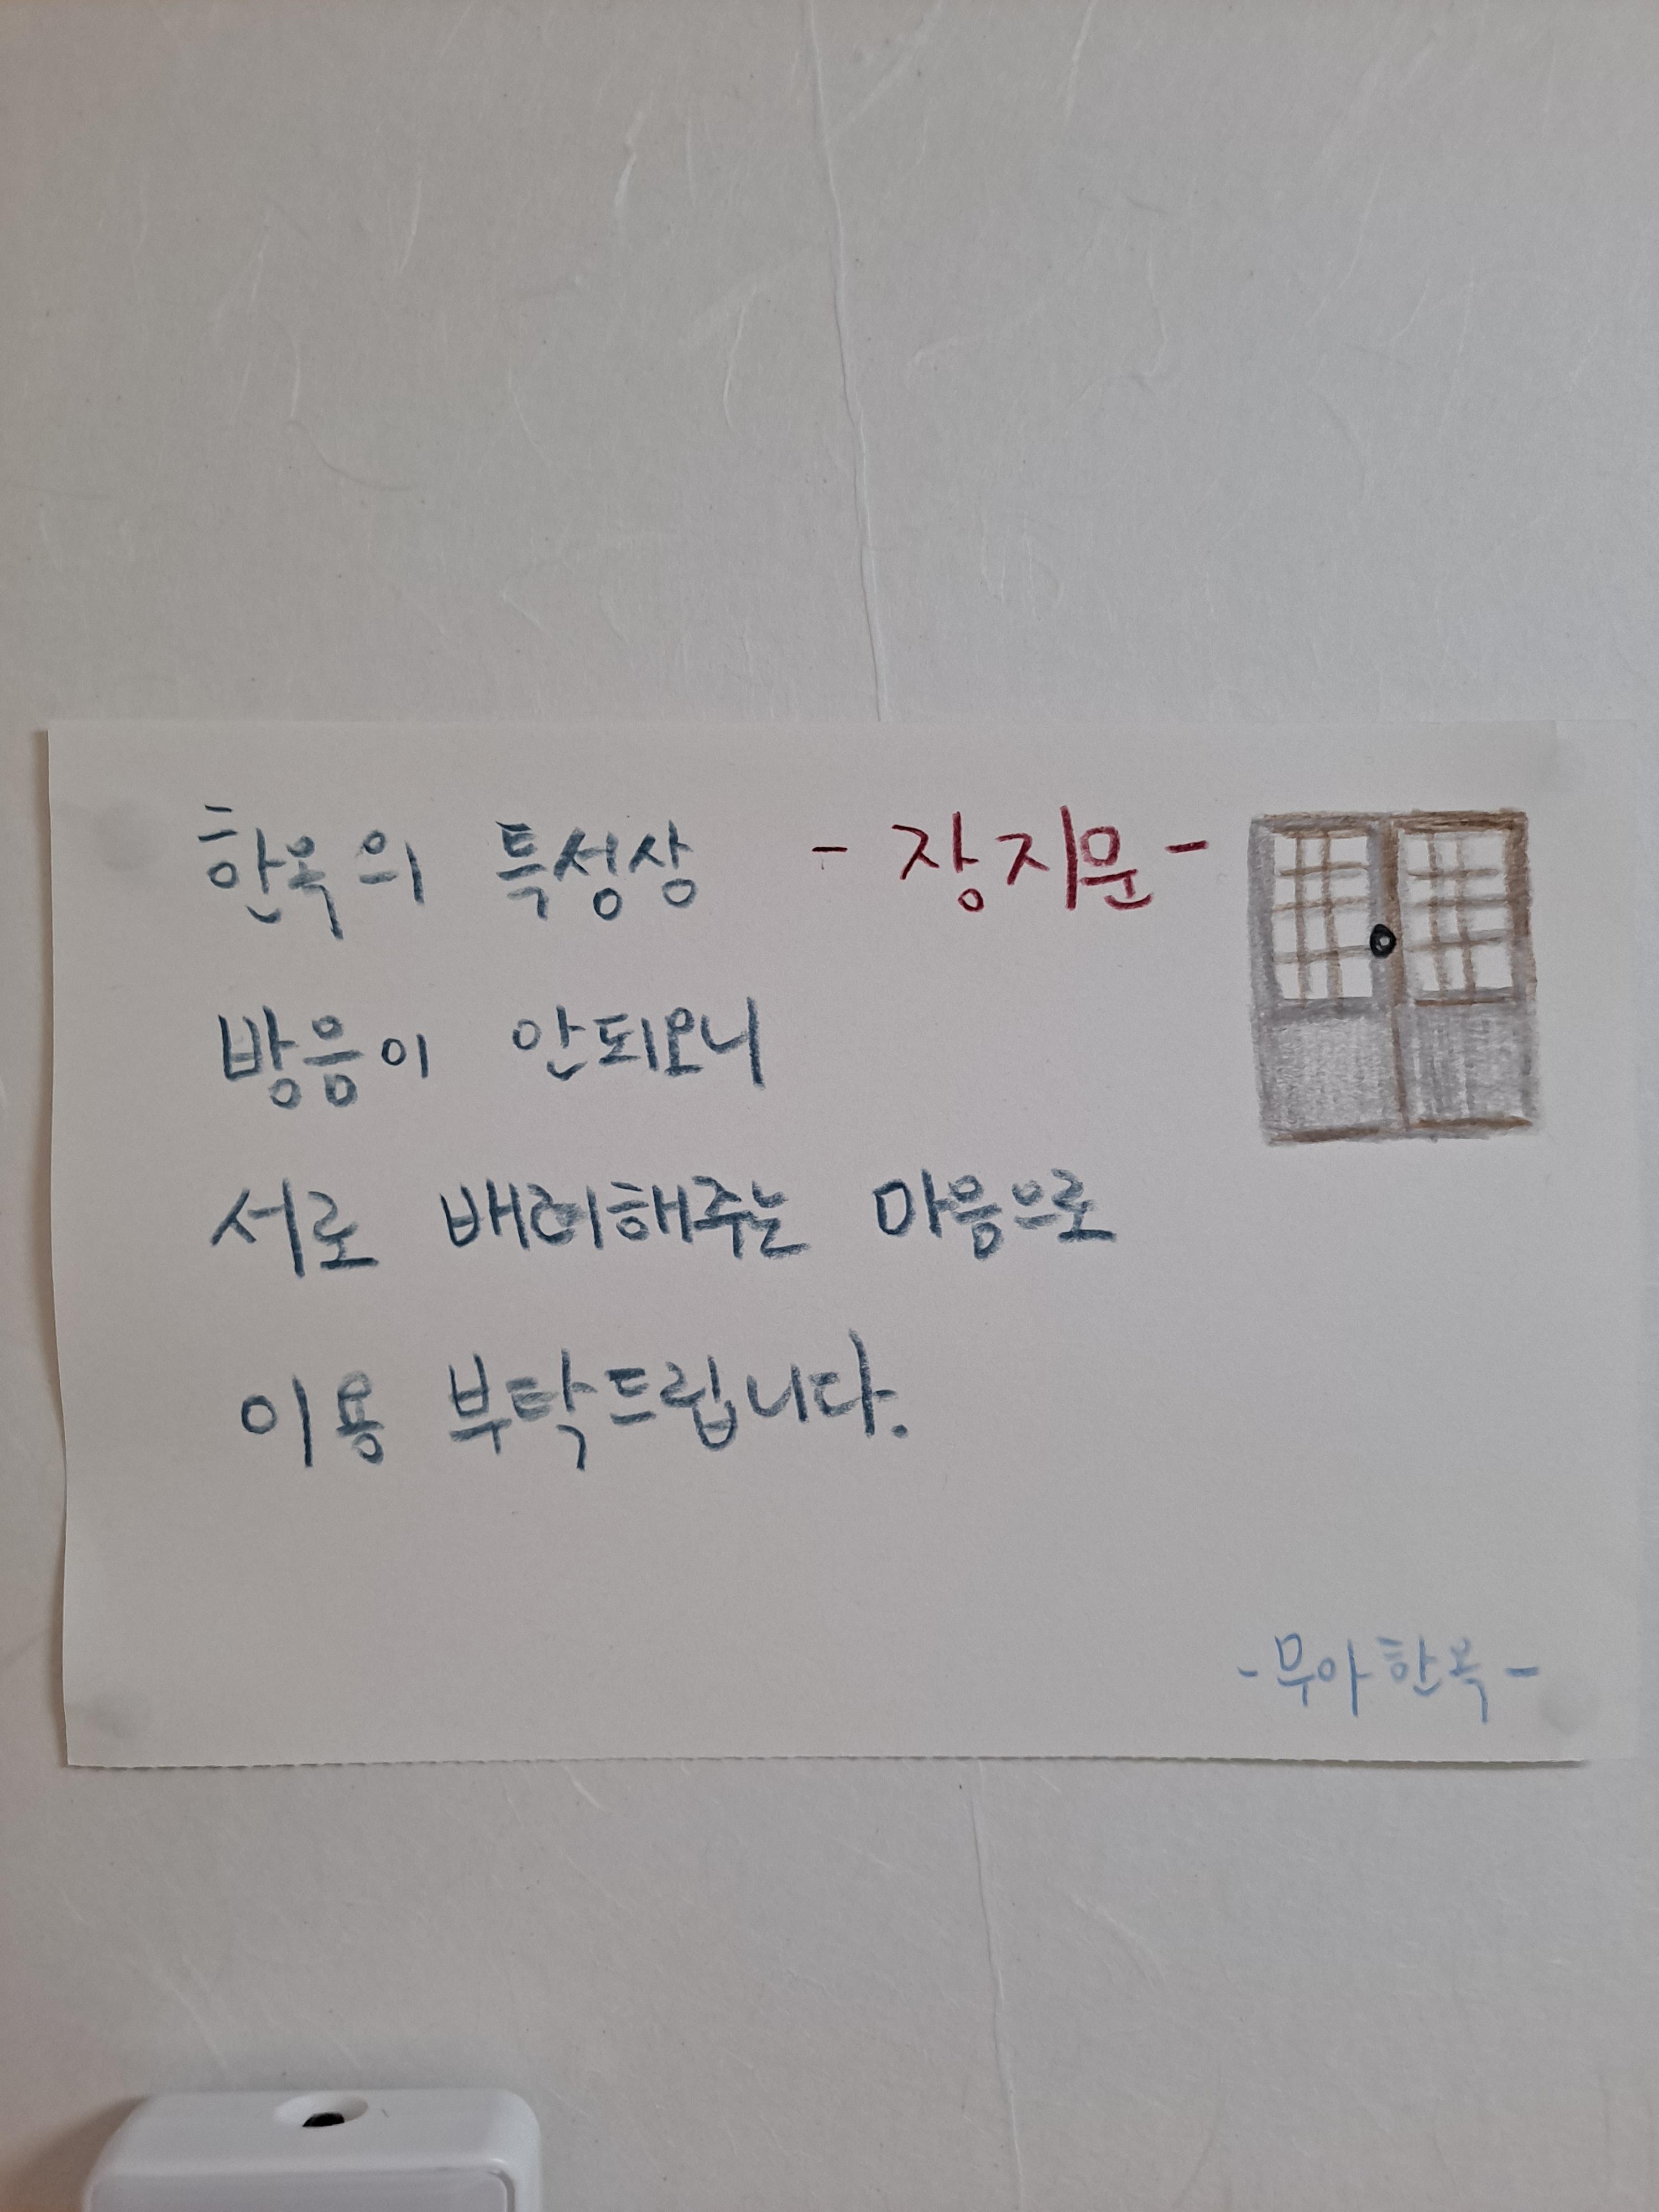 한옥의 특성상 - 장지문 -
방음이 안되오니
서로 배려해주는 마음으로
이용 부탁드립니다.
- 무아한옥 -